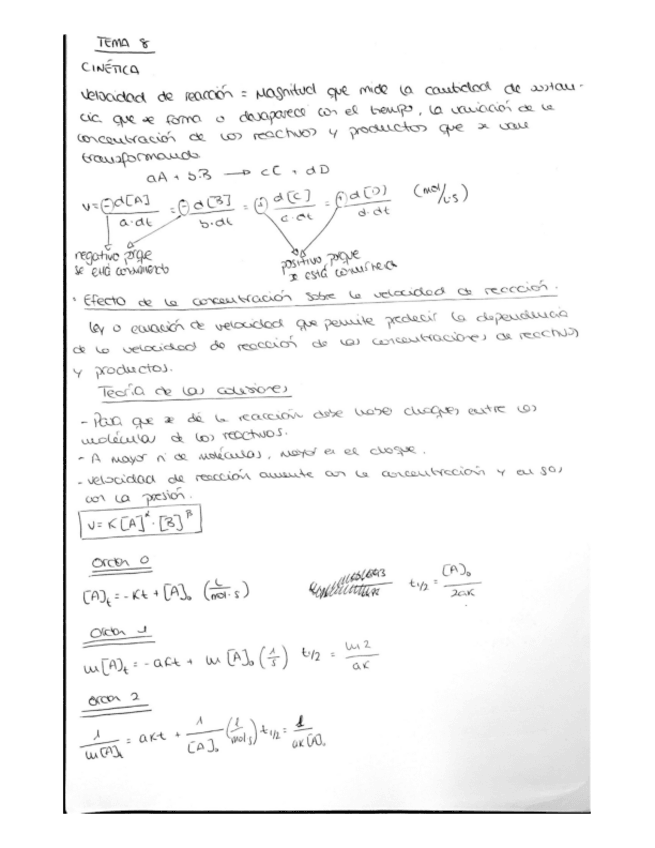 TEMA 8
CINÉTICA
Velocidad de reacción = Magnitud que mide la cantidad de sustan-
cia que se forma o desaparece con el tiempo, la variación de la
concentración de los reactivos y productos que se van
transformando.
aA + bB → cC + dD
v = (-) d[A] / a·dt = (-) d[B] / b·dt = (+) d[C] / c·dt = (+) d[D] / d·dt (mol/L·s)
negativo porque
se está consumiendo
positivo porque
se está
· Efecto de la concentración sobre la velocidad de reacción.
Ley o ecuación de velocidad que permite predecir la dependencia
de la velocidad de reacción de las concentraciones de reactivos
y productos.
Teoría de las colisiones
- Para que se dé la reacción debe haber choques entre las
moléculas de los reactivos.
- A mayor nº de moléculas, mayor es el choque.
- Velocidad de reacción aumenta con la concentración y en gas,
con la presión.
v = K [A]^α · [B]^β
Orden 0
[A]t = -Kt + [A]₀ (L/mol·s) t1/2 = [A]₀ / 2aK
Orden 1
ln[A]t = -aKt + ln[A]₀ (1/s) t1/2 = ln2 / aK
Orden 2
1 / ln[A]t = aKt + 1 / [A]₀ (L/mol·s) t1/2 = 1 / aK[A]₀